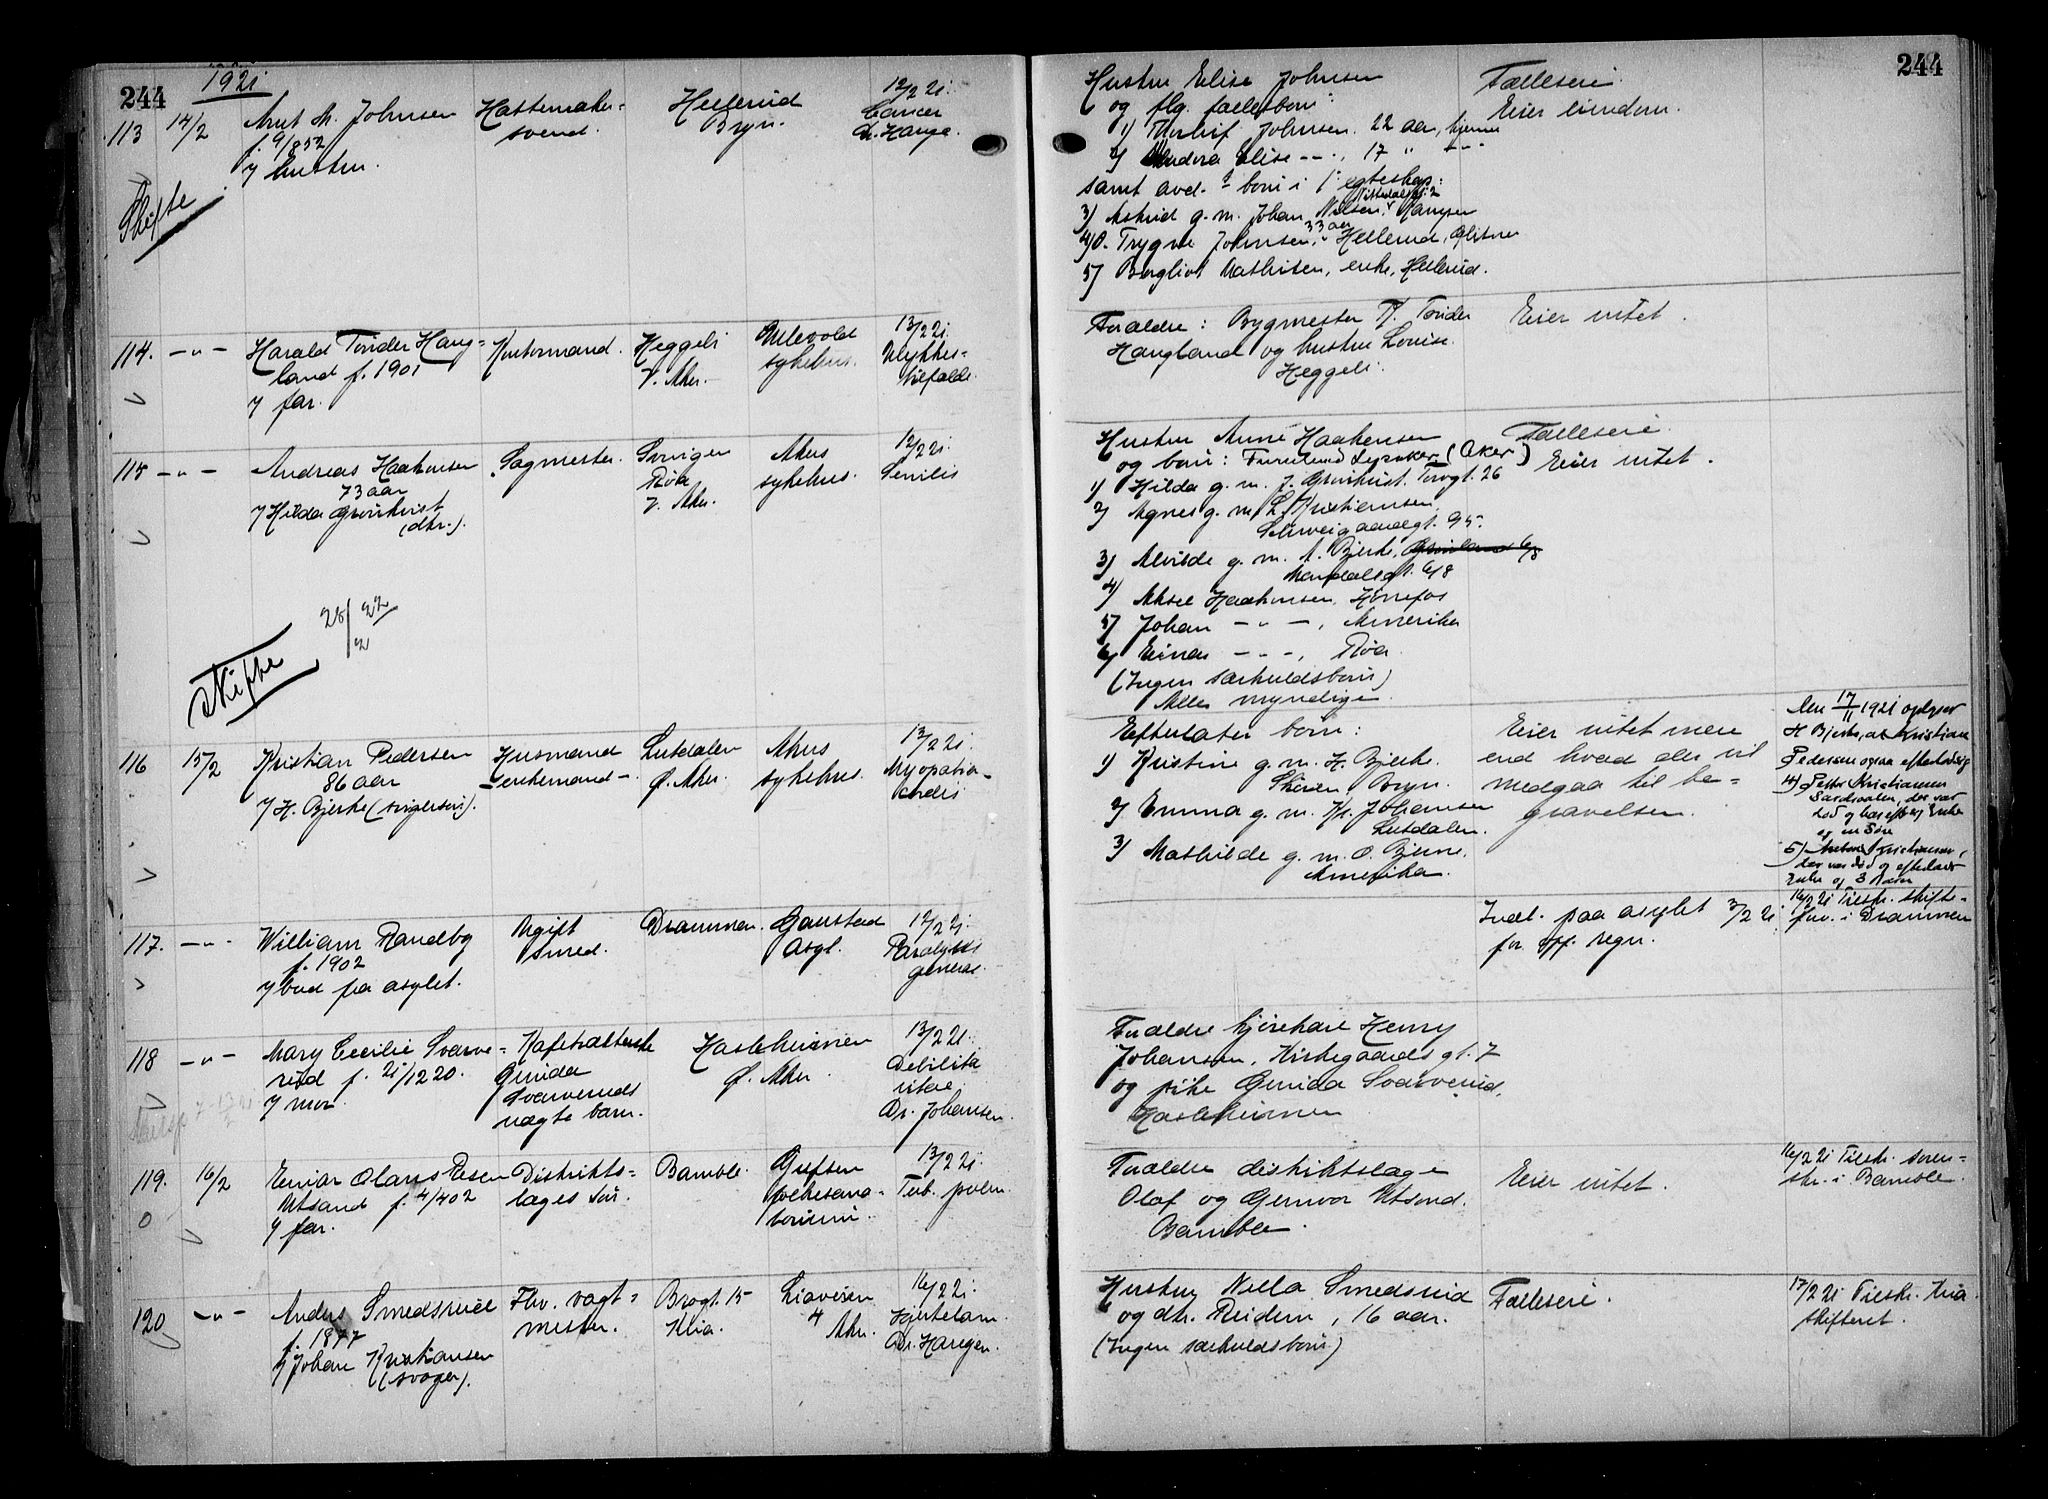 244
1921
113
14/2
Arnt M. Johnsen
f. 9/852
v/ hustru.
Hattemaker-
svend.
Hellerud
Bryn.
12/2 21.
Cancer
Dr. Hauge.
Skifte
114.
Harald Tønder Haug-
land f. 1901
v/ far.
Kontormand.
Heggeli
V. Aker.
Ullevold
sykehus.
13/2 21.
Ulykkes-
tilfælde.
115
Andreas Haakonsen
73 aar
v/ Hilda Grönkvist
(dtr.).
Sagmester.
Røa
V. Aker.
Akers
sykehus.
12/2 21.
Senilis
28/2 22
Skifte
116
15/2
Kristian Pedersen
86 aar
v/ H. Bjerke (svigersøn).
Husmand
- enkemand -
Lutdalen
Ø. Aker.
Akers
sykehus.
13/2 21.
Myopatia
cordis
117.
William Randby
f. 1902
v/ bud fra asylet.
Ugift
smed.
Drammen.
Gaustad
Asyl.
12/2 21.
Paralysis
generalis.
118
Mary Cecilie Svarve-
rud f. 21/12 20.
v/ mor.
Gunda
Svarveruds
uægte barn.
Ø. Aker.
13/2 21.
Debilitas
vitae
Dr. Johansen.
119.
16/2
Einar Olaus Resen
Utsand f. 4/4 02
v/ far.
Distrikts-
læges søn.
Bamble.
Grefsen
folkesana-
torium.
13/2 21.
Tub. pulm.
120
Anders Smedsrud
f. 1877
v/ Johan Kristiansen
(svoger).
Fhv. vagt-
mester.
Brogt. 15
Kria.
Liaveien
4
Aker.
16/2 21.
Hjertelam.
Dr. Haugen.
244
Hustru Elise Johnsen
og flg. fællesbørn:
1) Thorleif Johnsen 22 aar, hjemme
2) Andora Elise - " - 17 " - " -
samt avd. børn i 1. egteskap:
3) Astrid g. m. Johan Nilsen,
4) O. Trygve Johnsen, 33 aar Hellerud,
5) Borgliot Mathisen, enke, Hellerud.
Fælleseie.
Eier eiendom.
Forældre: Bygmester T. Tønder
Haugland og hustru Louise.
Heggeli.
Eier intet.
Hustru Anne Haakonsen
og børn: Furulund Lysaker (Aker)
1) Hilda g. m. J. Grönkvist. Torvgt. 26
2) Agnes g. m. L. Kristiansen,
Schweigaardsgt. 95.
3) Alvilde g. m. A. Bjerke,
Mandalsgt. 6/8
4) Aksel Haakonsen, Hönefos
5) Johan - " -, Amerika
6) Einar - " -, Røa.
(Ingen særkuldsbørn)
Alle myndige.
Fælleseie.
Eier intet.
Efterlater børn:
1) Kristine g. m. H. Bjerke.
Skøien, Bryn.
2) Emma g. m. Kr. Johansen
Lutdalen.
3) Mathilde g. m. O. Bjerke.
Amerika.
Eier intet mere
end hvad der vil
medgaa til be-
gravelsen.
Den 17/11 1921 oplyser
H Bjerke, at Kristian
Pedersen ogsaa efterlod sig
4) Peter Kristiansen
Sørdalen, der var
død og har efterl. Enke
og en Søn
5) Anton Kristiansen,
der var død og efterlader
Enke og 3 Børn
Indl. paa asylet 3/2 21
for off. regn.
16/2 21 Tilskr. skifte-
forv. i Drammen
Forældre kjørekar Henry
Johansen, Kirkegaardsgt. 7
og pike Gunda Svarverud,
Forældre distriktslæge
Olaf og Gunvor Utsand.
Bamble.
Eier intet.
16/2 21 Tilskr. soren-
skr. i Bamble.
Hustru Nilla Smedsrud
og dtr. Reidun, 16 aar.
(Ingen særkuldsbørn)
Fælleseie.
17/2 21 Tilskr. Kria
skifteret.